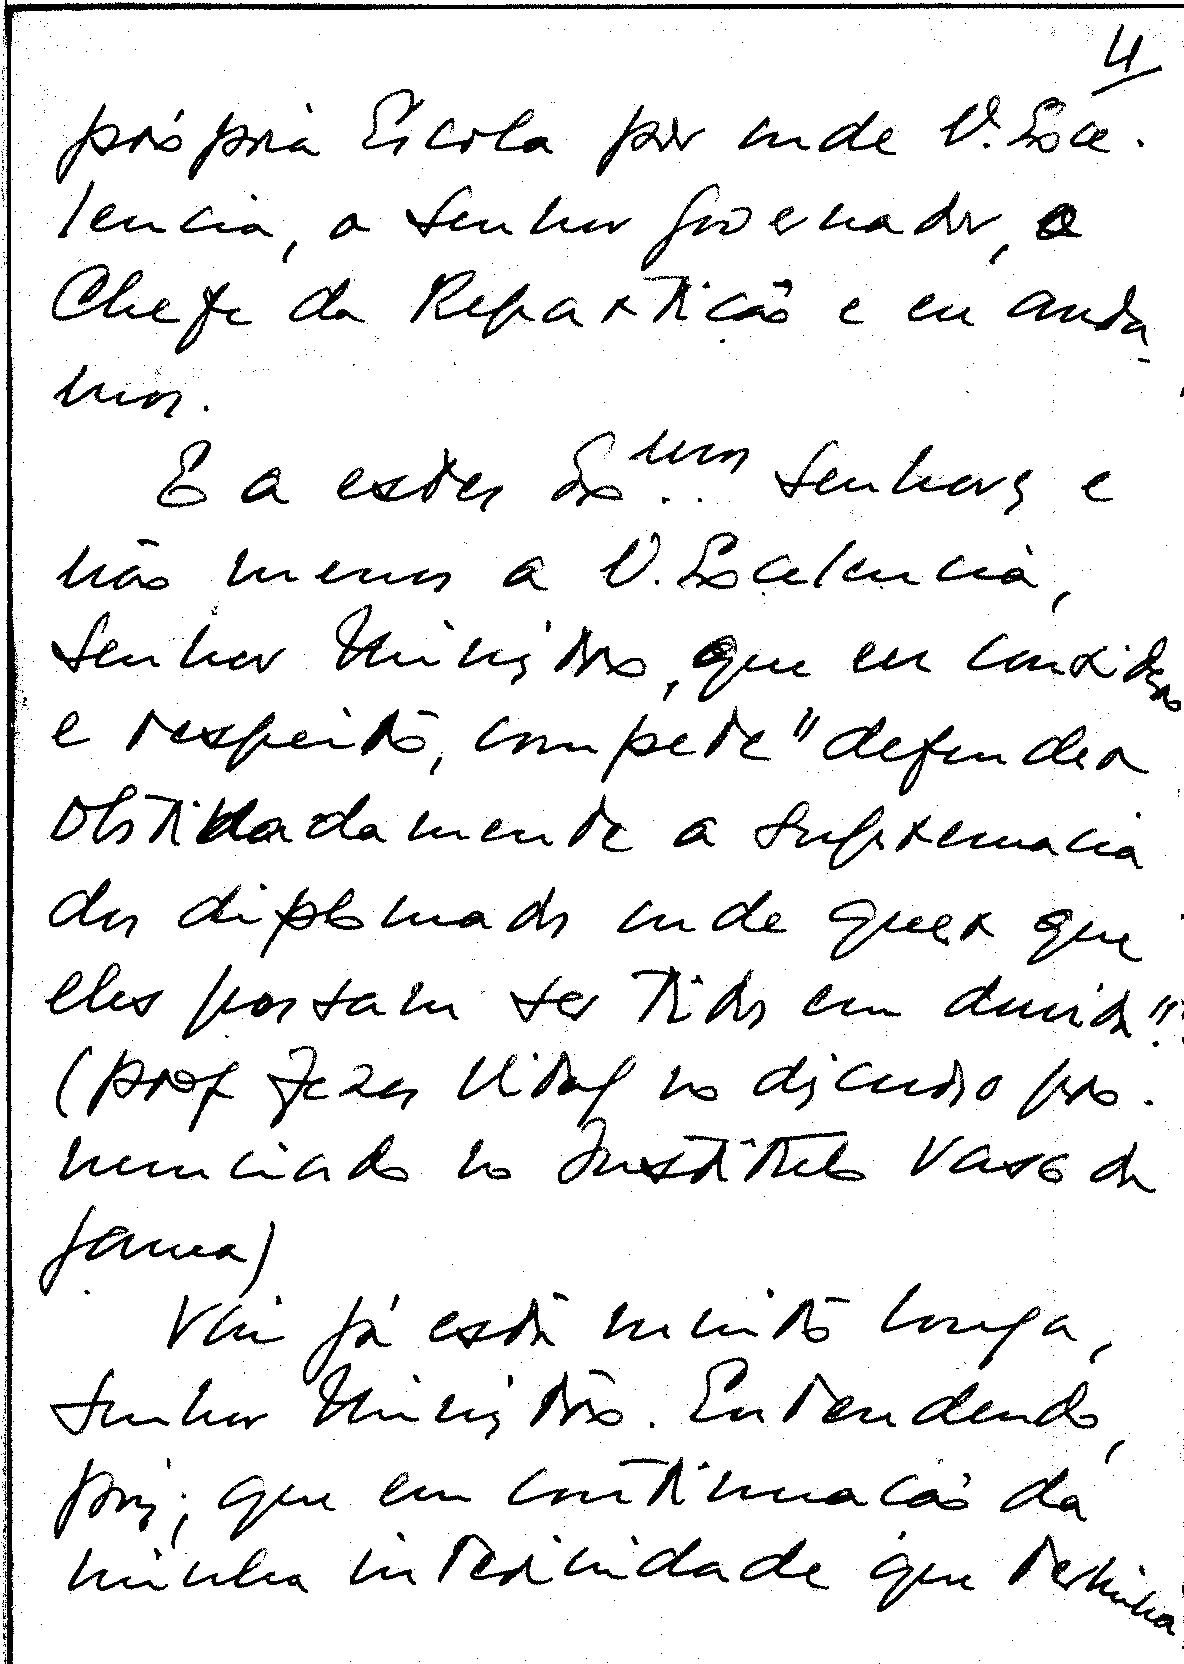 4
própria Escola por onde V. Exce-
lencia, o Senhor Governador, o
Chefe da Repartição e eu anda-
mos.
E a estes Ex.mos Senhores e
não menos a V. Excelencia,
Senhor Ministro, que eu considero
e respeito, compete "defender
obstinadamente a supremacia
dos diplomados onde quer que
eles possam ser tidos em duvida".
(prof Vidal no discurso pro-
nunciado no Instituto Vasco da
Gama)
Vai já está muito longa,
Senhor Ministro. Entendendo,
pois, que em continuação da
minha interinidade que terminia